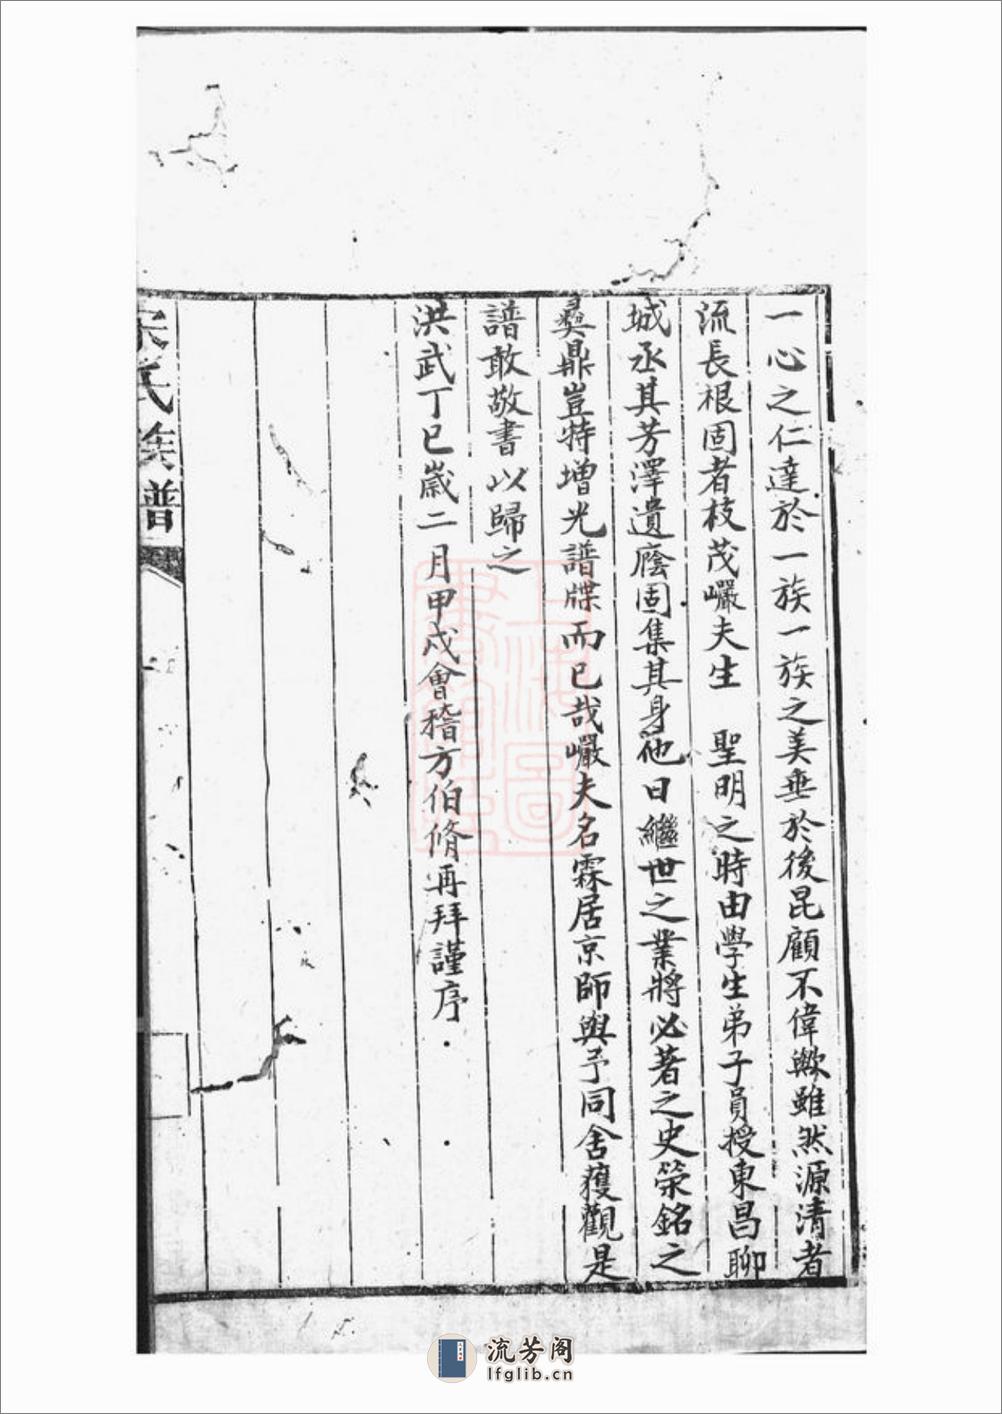 一心之仁達於一族一族之美垂於後昆顧不偉歟雖然源清者
流長根固者枝茂巗夫生　聖明之時由學生弟子員授東昌聊
城丞其芳澤遺廕固集其身他日繼世之業將必著之史策銘之
彝鼎豈特增光譜牒而已哉巗夫名霖居京師與予同舍獲觀是
譜敢敬書以歸之
洪武丁巳歲二月甲戍會稽方伯脩再拜謹序
宋氏族譜
上海圖書館藏
流芳阁
lfglib.cn